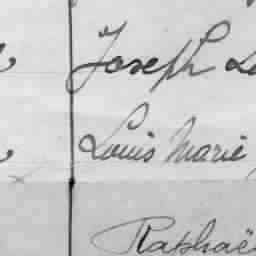 Joseph
Louis Marie
Raphaë